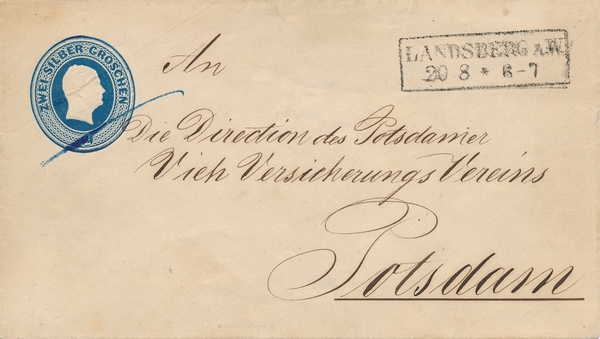 ZWEI SILBER GROSCHEN
LANDSBERG A.W.
20 8 * 6-7
An
Die Direction des Potsdamer
Vieh Versicherungs Vereins
Potsdam